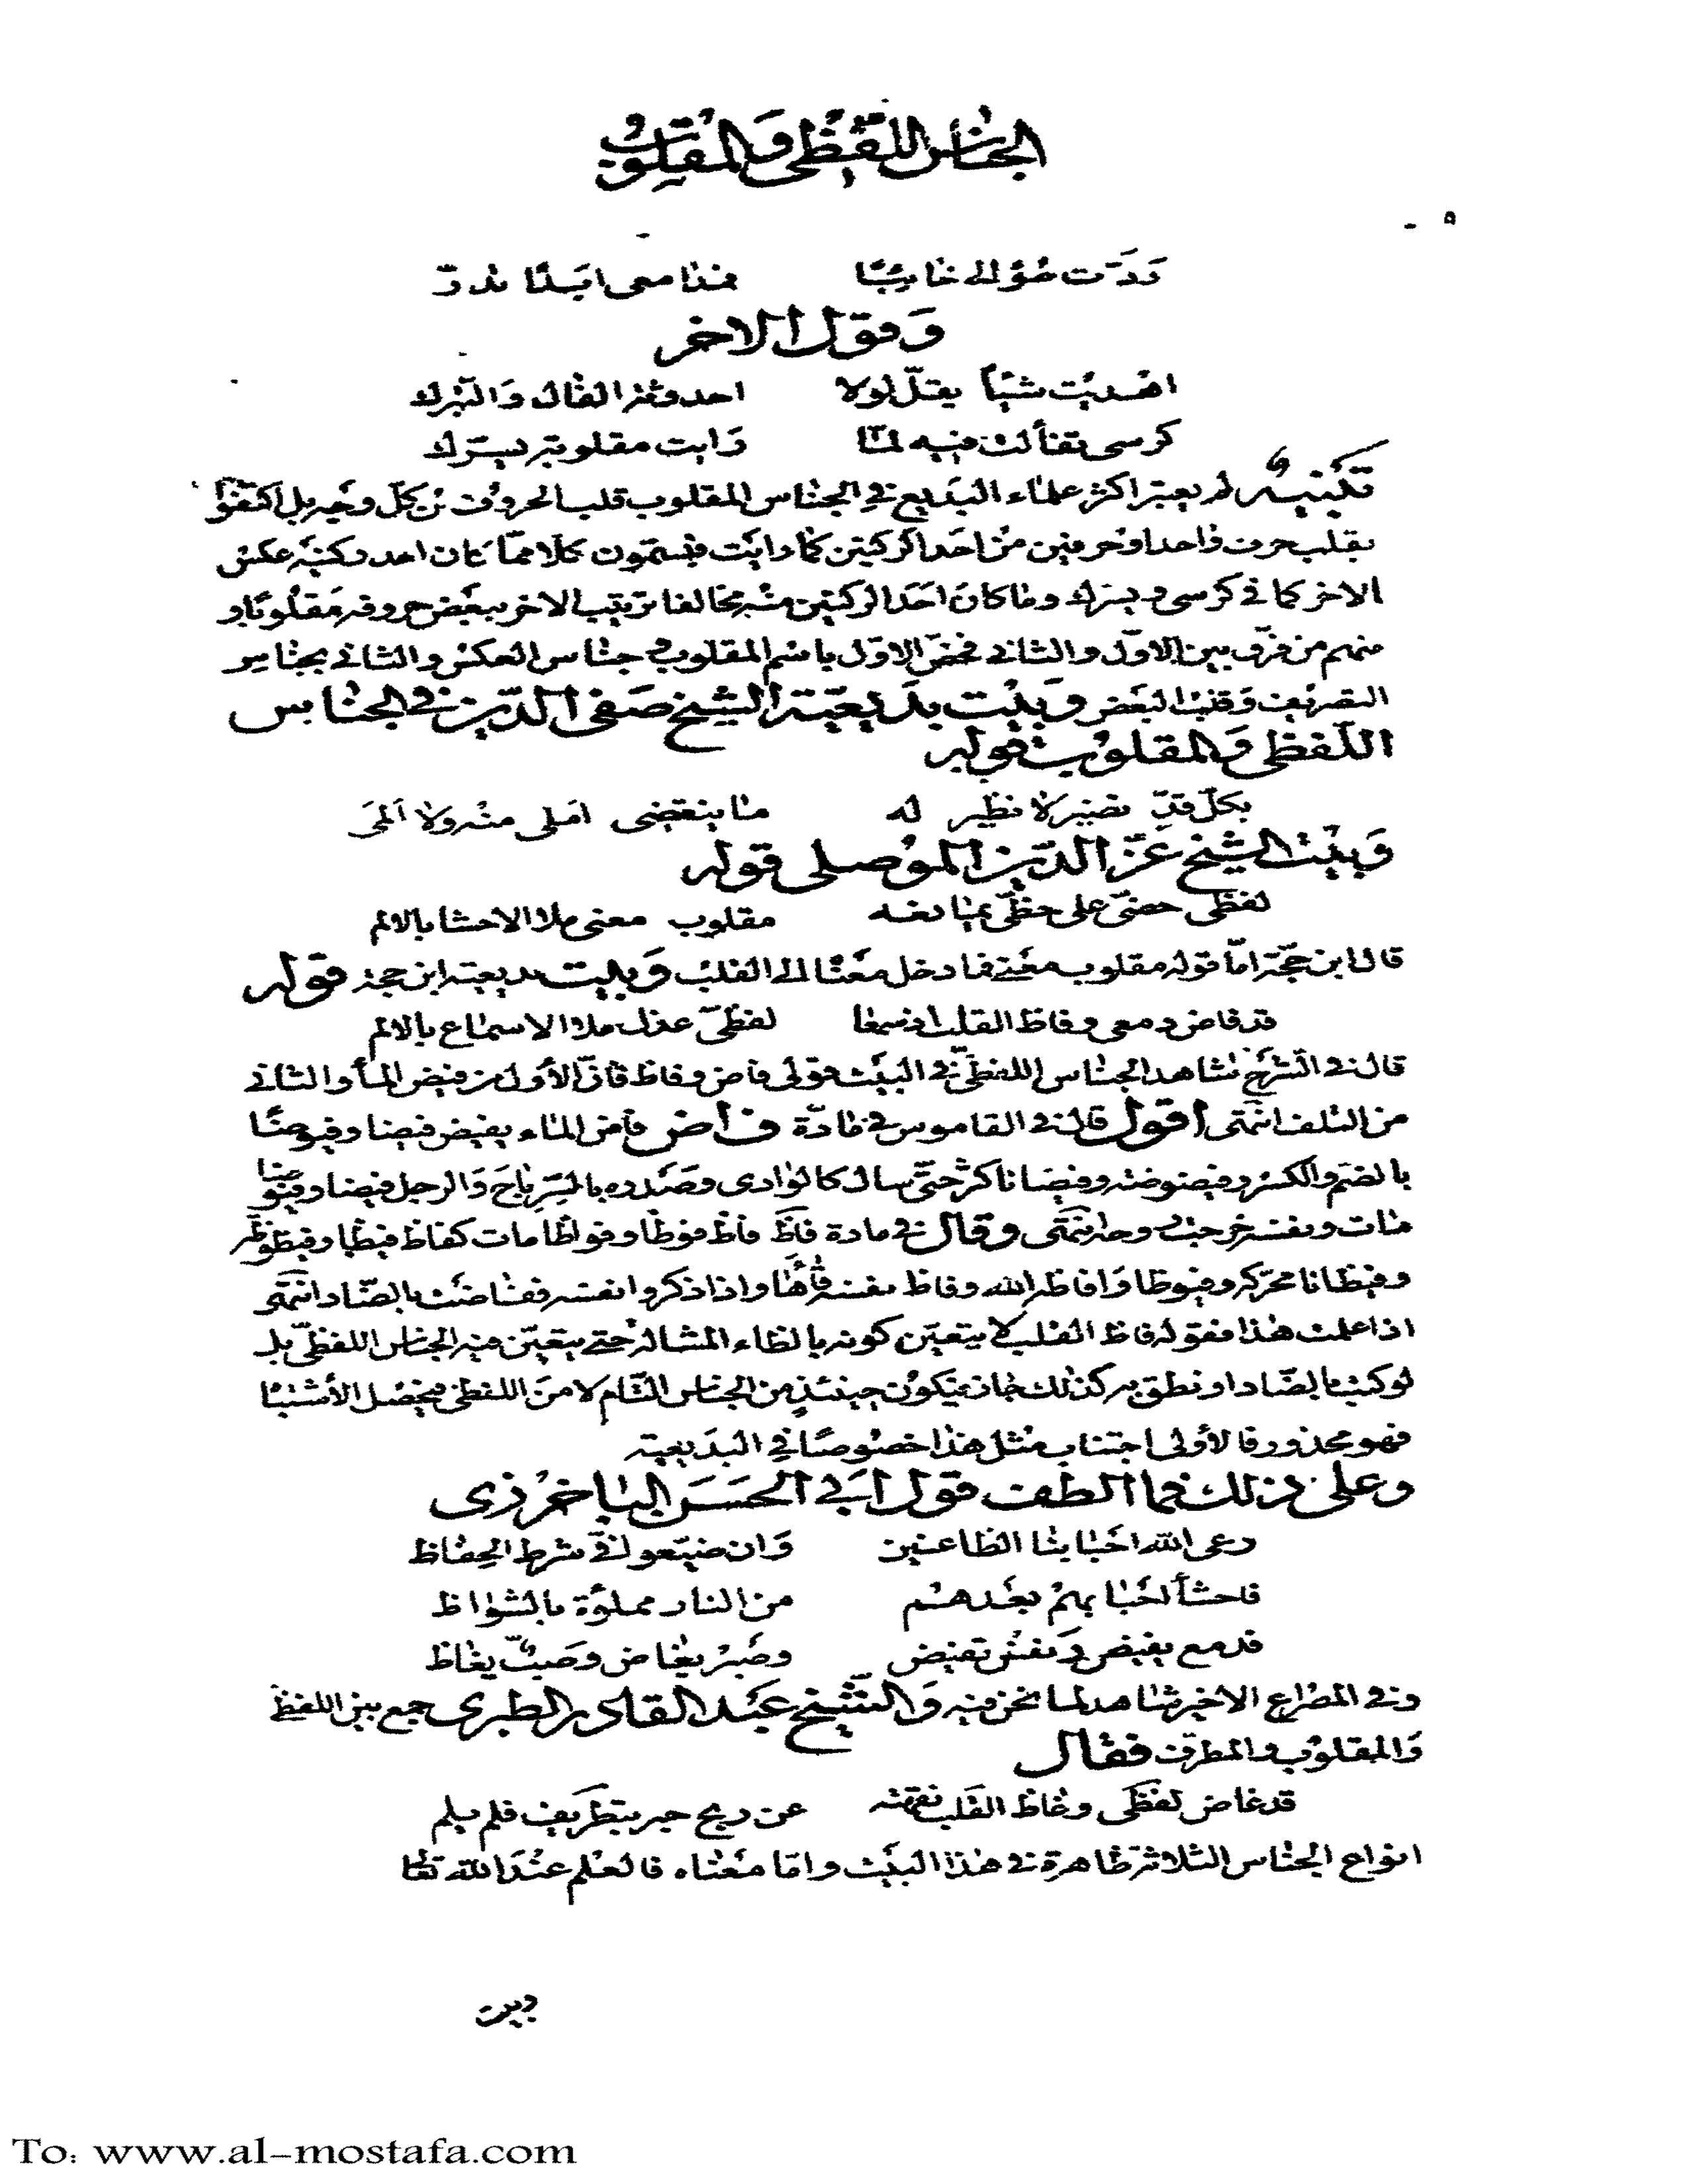 الجناس اللفظي والمقلوب
ردّت سؤالي خائبًا فمذا معى ابدًا
وقول الاخر
اهديت شيئًا يقلّ لولا احدوثة الفال والتبرك
كرسى تفألت فيه لمّا رايت مقلوبه يسرّك
تنبيه لم يعتبر اكثر علماء البديع في الجناس المقلوب قلب الحروف من كلّ وجه بل اكتفوا
بقلب حرف واحد او حرفين من احد الركنين كما رايت فيسمّون كلا ممّا كان احد ركنيه عكس
الاخر كما في كرسى ويسرك وما كان احد الركنين منه مخالفا ترتيب الاخر ببعض حروفه مقلوبًا و
منهم من فرّق بين الاوّل والثاني فخصّ الاوّل باسم المقلوب وجناس العكس والثاني بجناس
التصريف وقلب البعض وبيت بديعيّة الشيخ صفى الدّين في الجناس
اللّفظى والمقلوب قوله
بكلّ قدّ نضير لا نظير له ما ينقضى املى منه ولا ألمى
وبيت الشيخ عزّ الدّين الموصلى قوله
لفظى حضّى على حظّى بمنا مقلوب معنى ملا الاحشا بالالم
قال ابن حجّة امّا قوله مقلوب معنى فما دخل معنا الى القلب وبيت بديعيته ابن حجة قوله
قد فاض دمعى وفاظ القلب اذ سمعا لفظىّ عذل ملا الاسماع بالالم
قال في الشرح شاهد الجناس اللفظىّ في البيت قولى فاض وفاظ فانّ الأول من فيض الماء والثانى
من التلف انتهى اقول قال في القاموس في مادّة فاض فاض الماء يفيض فيضا وفيوضًا
بالضم والكسر وفيضوضة وفيضانا كثر حتّى سال كالوادى وصدره بالسّر باح والرجل فيضا وفيوضا
مات ونفسه خرجت روحه انتهى وقال في مادة فاظ فاظ فوظا وفواظا مات كفاظ فيظا وفيظوظة
وفيظانا محرّكة وفيوظا وافاظه الله وفاظ نفسه قاءها واذا ذكروا نفسه ففاضت بالضّاد انتهى
اذا علمت هذا فقوله فاظ القلب لا يتعيّن كونه بالظاء المشالة حتى يتعيّن فيه الجناس اللفظىّ بل
لو كتب بالضّاد او نطق به كذلك جاز فيكون حينئذ من الجناس التّام لا من اللفظى فيحصل الأشتباه
فهو محذور فالأولى اجتناب مثل هذا خصوصًا في البديعيته
وعلى ذلك فما الطف قول ابى الحسن الباخرزى
رعى الله احبابنا الظاعنين وان ضيّعوا في شرط الحفاظ
فاحشا احبابهم بعدهم من النار مملوّة بالشواظ
فدمع يفيض ونفس تفيض وصبر يغاض وصبّ يغاظ
وفى المصراع الاخير شاهد لما نحن فيه والشيخ عبد القادر الطبرى جمع بين اللفظى
والمقلوب والمطرف فقال
قد غاض لفظى وغاظ القلب عن ربح حبر بتظريف فلم يلم
انواع الجناس الثلاثة ظاهرة في هذا البيت وامّا معناه فالعلم عند الله تعا
وبيت
To: www.al-mostafa.com